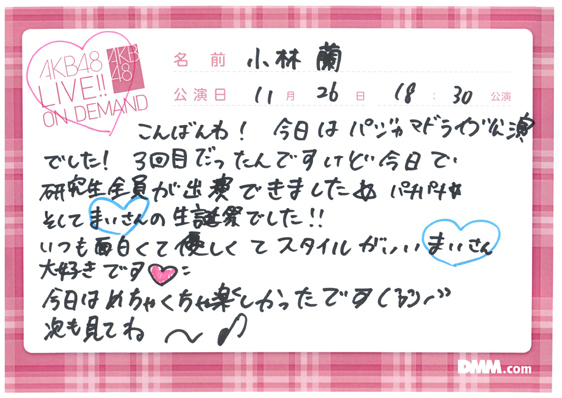 AKB48
LIVE!!
ON DEMAND
AKB
48
名前 小林 蘭
公演日 11月26日 18:30公演
こんばんわ! 今日はパジャマドライブ公演
でした! 3回目だったんですけど今日で
研究生全員が出演できました パチパチ
そしてまいさんの生誕祭でした!!
いつも面白くて優しくてスタイルがいいまいさん
大好きです
今日はめちゃくちゃ楽しかったです(
次も見てね〜
DMM.com